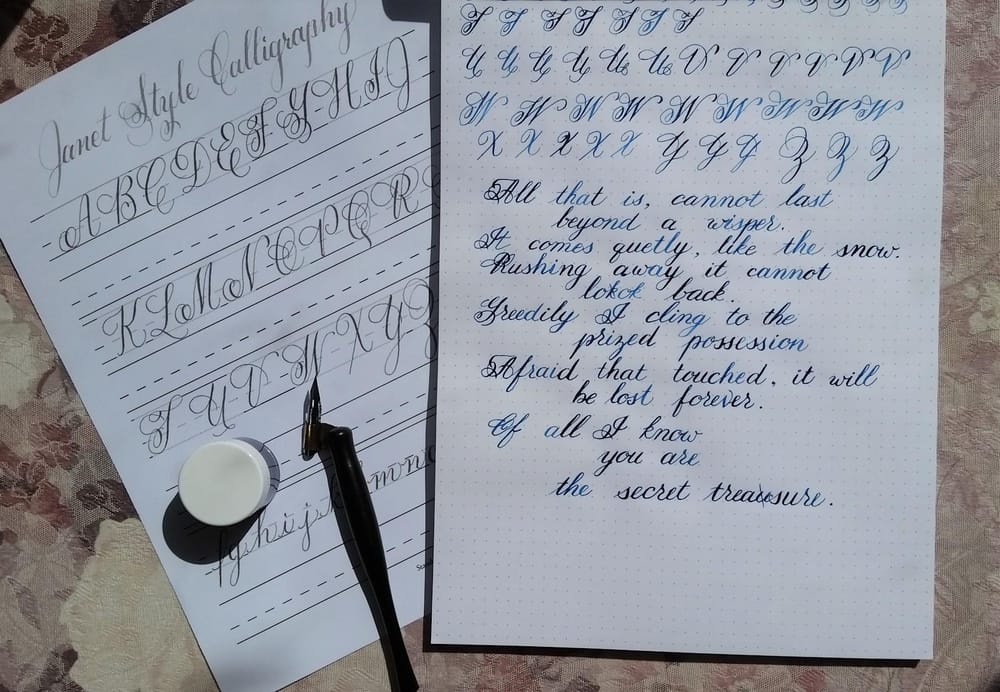 Janet Style Calligraphy
A B C D E F G H I J
K L M N O P Q R
T U V W X Y Z
f g h i j k m n o
T T T T T T T
U U U U U U V V V V V V
W W W W W W W W W
X X X X X Y Y Y Z Z Z
All that is, cannot last
beyond a wisper.
It comes quetly, like the snow.
Rushing away it cannot
lokok back.
Greedily I cling to the
prized possession
Afraid that touched, it will
be lost forever.
Of all I know
you are
the secret treausure.